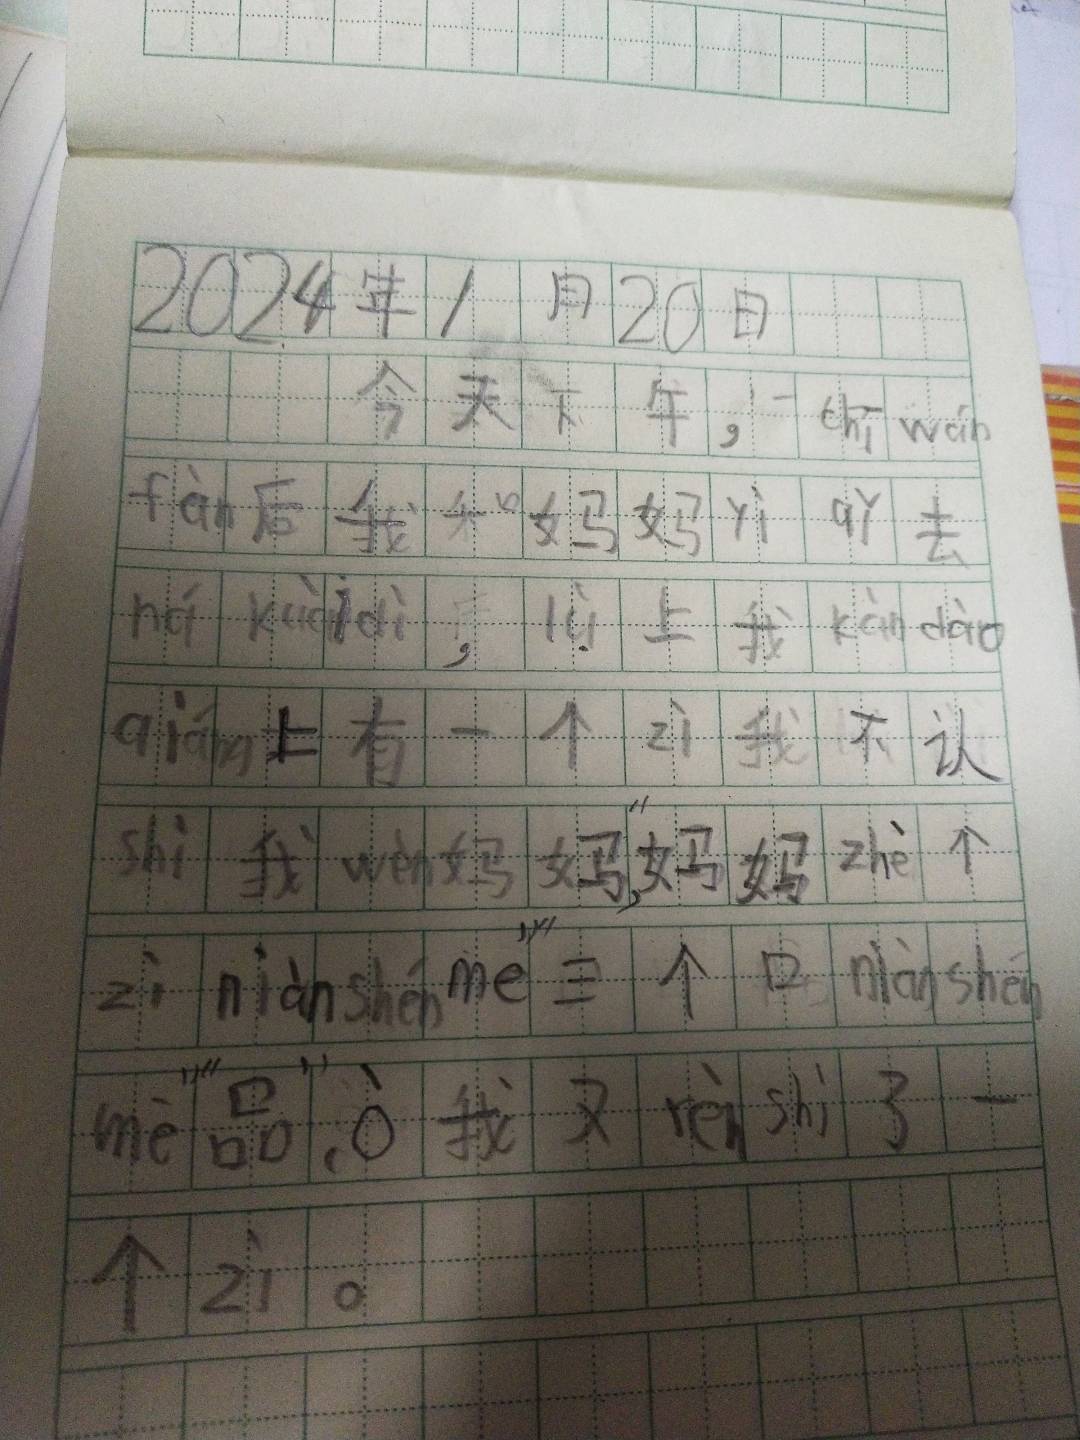 2024年1月20日
今天下午,chī wán
fàn后我和妈妈yì qǐ去
ná kuàidì,lù上我kàn dào
qiáng上有一个zì我不认
shì我wèn妈妈,"妈妈zhè个
zì niàn shén me""三个口niàn shén
mè""品",ò我又rèn shì了一
个zì。